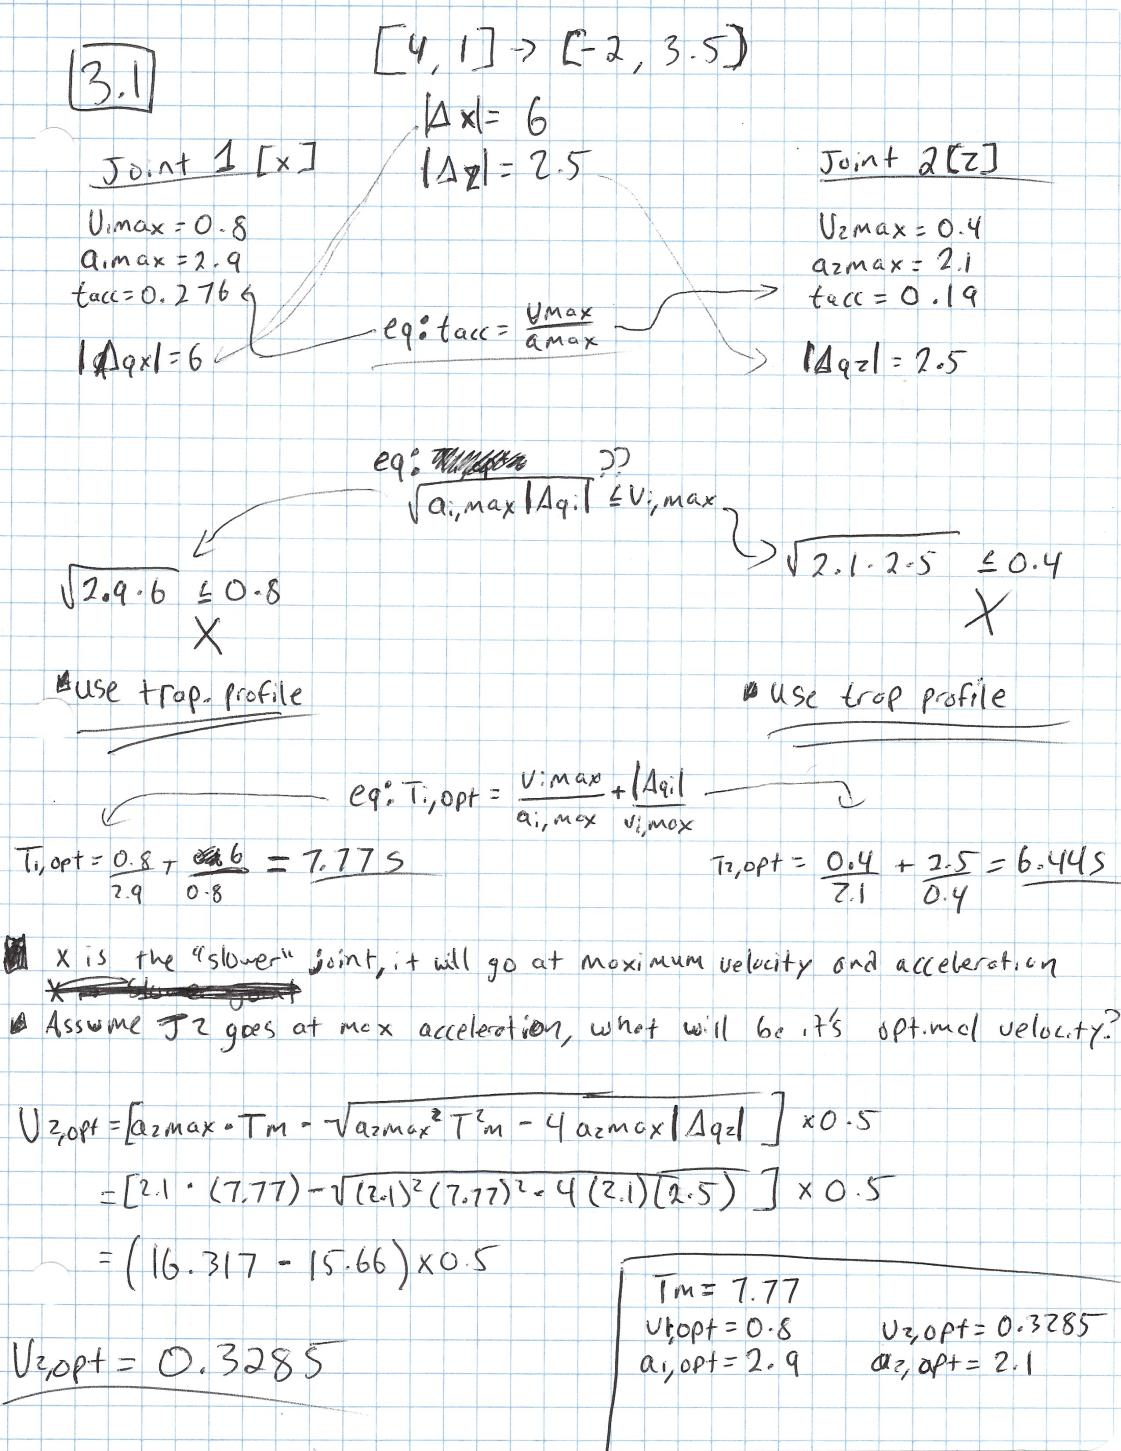 3.1
[4, 1] → [-2, 3.5]
|Δx| = 6
|Δz| = 2.5
Joint 1 [x]
V1max = 0.8
a1max = 2.9
tacc = 0.276
|Δqx| = 6
Joint 2 [z]
V2max = 0.4
a2max = 2.1
tacc = 0.19
|Δqz| = 2.5
eq: tacc = Vmax/amax
eq: ??
√(ai,max |Δqi|) ≤ Vi,max
√(2.9·6) ≤ 0.8
X
√(2.1·2.5) ≤ 0.4
X
use trap. profile
use trap profile
eq: Ti,opt = Vimax/ai,max + |Δqi|/vi,max
T1,opt = 0.8/2.9 + 6/0.8 = 7.77s
T2,opt = 0.4/2.1 + 2.5/0.4 = 6.44s
x is the "slower" joint, it will go at maximum velocity and acceleration
Assume J2 goes at max acceleration, what will be it's optimal velocity?
V2,opt = [a2max · Tm - √(a2max² T²m - 4 a2max |Δq2|)] × 0.5
= [2.1 · (7.77) - √((2.1)²(7.77)² - 4(2.1)(2.5))] × 0.5
= (16.317 - 15.66) × 0.5
V2,opt = 0.3285
Tm = 7.77
V1,opt = 0.8 V2,opt = 0.3285
a1,opt = 2.9 a2,opt = 2.1